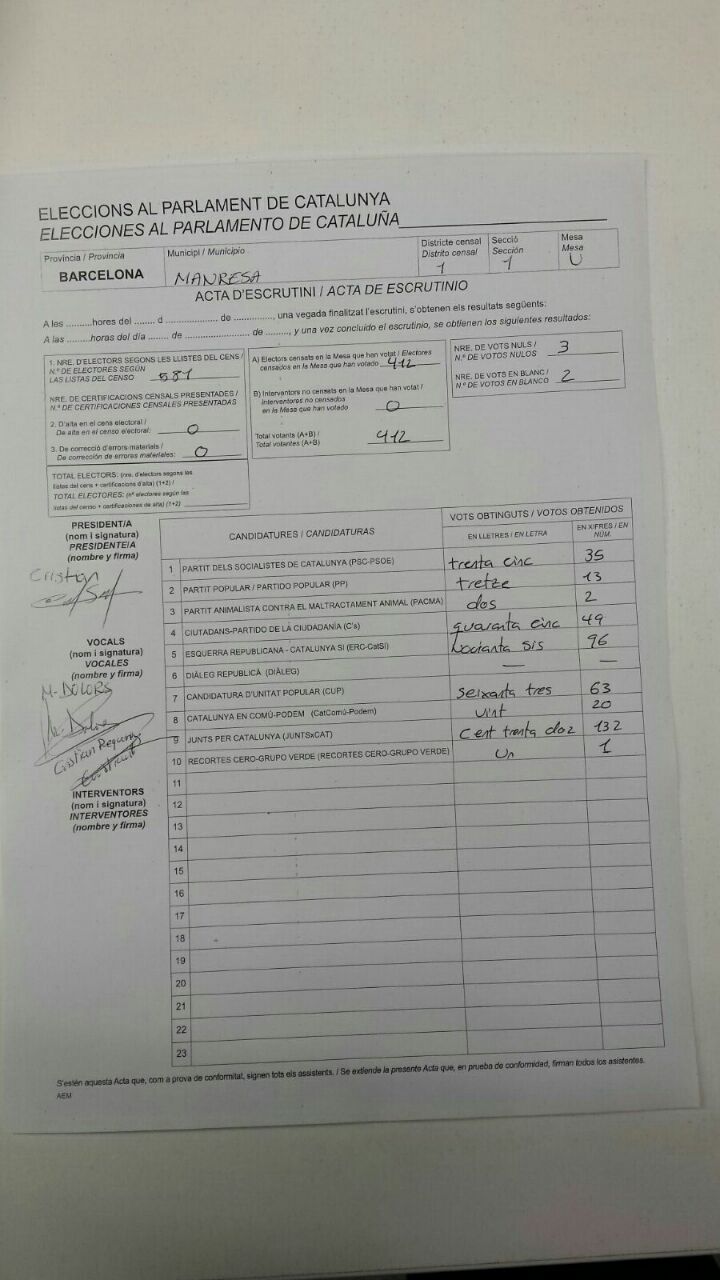 ELECCIONS AL PARLAMENT DE CATALUNYA
ELECCIONES AL PARLAMENTO DE CATALUÑA
Província / Provincia
BARCELONA
Municipi / Municipio
MANRESA
Districte censal
Distrito censal
1
Secció
Sección
1
Mesa
Mesa
U
ACTA D'ESCRUTINI / ACTA DE ESCRUTINIO
A les ..........hores del ........ d .................... de ..............., una vegada finalitzat l'escrutini, s'obtenen els resultats següents:
A las ..........horas del día ....... de ......................... de ........., y una vez concluido el escrutinio, se obtienen los siguientes resultados:
1. NRE. D'ELECTORS SEGONS LES LLISTES DEL CENS /
N.º DE ELECTORES SEGÚN
LAS LISTAS DEL CENSO 581
NRE. DE CERTIFICACIONS CENSALS PRESENTADES /
N.º DE CERTIFICACIONES CENSALES PRESENTADAS
2. D'alta en el cens electoral /
De alta en el censo electoral: 0
3. De correcció d'errors materials /
De corrección de errores materiales: 0
TOTAL ELECTORS: (nre. d'electors segons les
llistes del cens + certificacions d'alta) (1+2) /
TOTAL ELECTORES: (nº electores según las
listas del censo + certificaciones de alta) (1+2)
A) Electors censats en la Mesa que han votat / Electores
censados en la Mesa que han votado 412
B) Interventors no censats en la Mesa que han votat /
Interventores no censados
en la Mesa que han votado 0
Total votants (A+B) /
Total votantes (A+B) 412
NRE. DE VOTS NULS /
N.º DE VOTOS NULOS 3
NRE. DE VOTS EN BLANC /
N.º DE VOTOS EN BLANCO 2
PRESIDENT/A
(nom i signatura)
PRESIDENTE/A
(nombre y firma)
Cristian
VOCALS
(nom i signatura)
VOCALES
(nombre y firma)
M-DOLORS
INTERVENTORS
(nom i signatura)
INTERVENTORES
(nombre y firma)
CANDIDATURES / CANDIDATURAS
VOTS OBTINGUTS / VOTOS OBTENIDOS
EN LLETRES / EN LETRA
EN XIFRES / EN NÚM.
1 PARTIT DELS SOCIALISTES DE CATALUNYA (PSC-PSOE) trenta cinc 35
2 PARTIT POPULAR / PARTIDO POPULAR (PP) tretze 13
3 PARTIT ANIMALISTA CONTRA EL MALTRACTAMENT ANIMAL (PACMA) dos 2
4 CIUTADANS-PARTIDO DE LA CIUDADANÍA (C's) quaranta cinc 49
5 ESQUERRA REPUBLICANA - CATALUNYA SÍ (ERC-CatSí) Noranta sis 96
6 DIÀLEG REPUBLICÀ (DIÀLEG) — —
7 CANDIDATURA D'UNITAT POPULAR (CUP) seixanta tres 63
8 CATALUNYA EN COMÚ-PODEM (CatComú-Podem) vint 20
9 JUNTS PER CATALUNYA (JUNTSxCAT) cent trenta dos 132
10 RECORTES CERO-GRUPO VERDE (RECORTES CERO-GRUPO VERDE) Un 1
11
12
13
14
15
16
17
18
19
20
21
22
23
S'estén aquesta Acta que, com a prova de conformitat, signen tots els assistents. / Se extiende la presente Acta que, en prueba de conformidad, firman todos los asistentes.
AEM